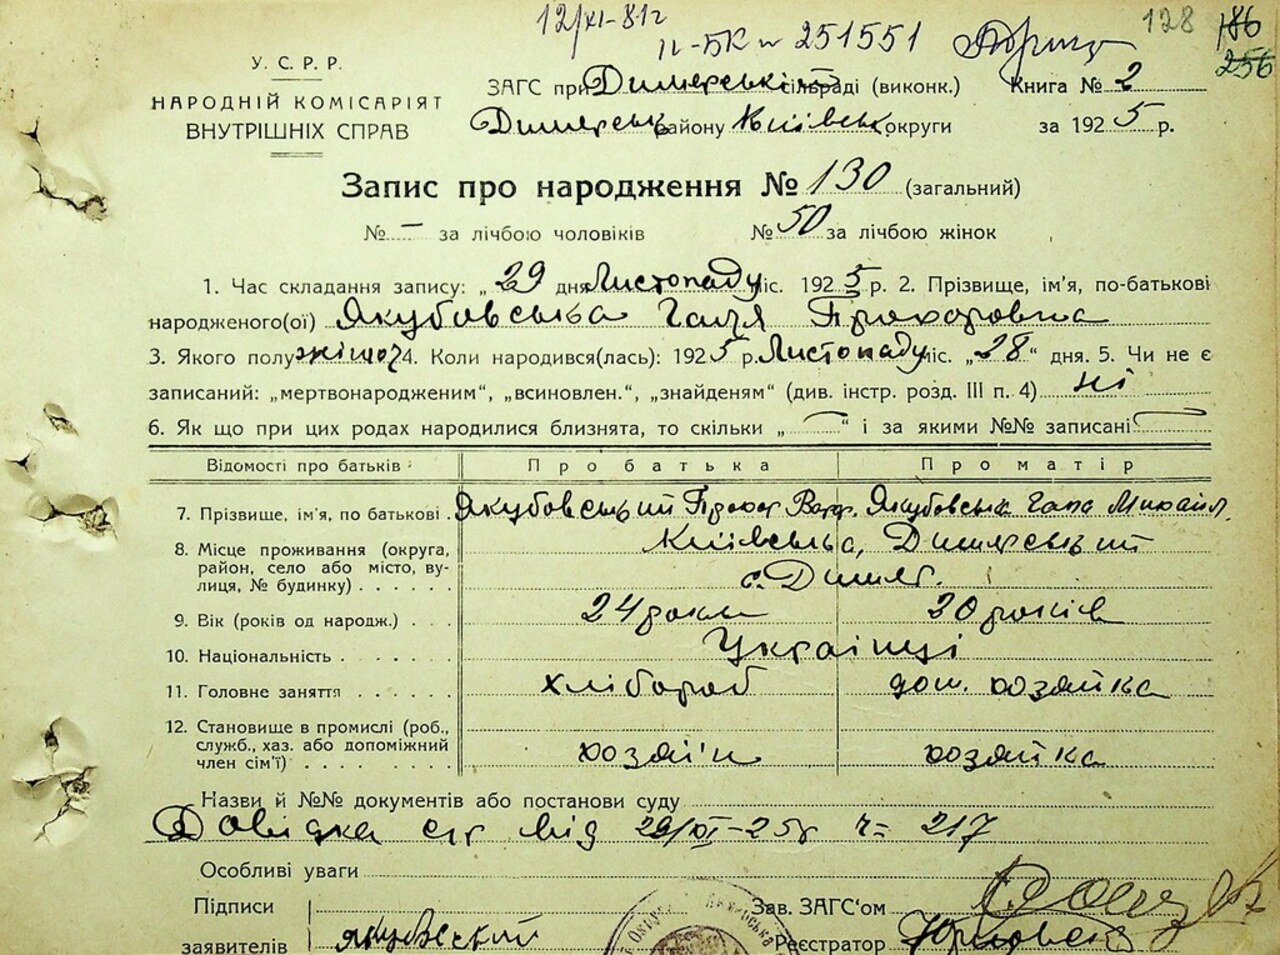 12/XI-81г 128 186
II-БК № 251551 256
У. С. Р. Р.
НАРОДНІЙ КОМІСАРІЯТ
ВНУТРІШНІХ СПРАВ
ЗАГС при Димерській сільраді (виконк.) Книга № 2
Димерськ району Київськ округи за 1925 р.
Запис про народження № 130 (загальний)
№ — за лічбою чоловіків № 50 за лічбою жінок
1. Час складання запису: „ 29 дня Листопаду міс. 1925 р. 2. Прізвище, ім'я, по-батькові
народженого(ої) Якубовська Галя Прохоровна
3. Якого полу жіноч 4. Коли народився(лась): 1925 р. Листопаду міс. „28“ дня. 5. Чи не є
записаний: „мертвонародженим“, „всиновлен.“, „знайденям“ (див. інстр. розд. III п. 4) ні
6. Як що при цих родах народилися близнята, то скільки „ — “ і за якими №№ записані —
Відомості про батьків Про батька Про матір
7. Прізвище, ім'я, по батькові Якубовський Прохор Якубовська Гапа Михайл.
8. Місце проживання (округа, Київська, Димерський
район, село або місто, ву-
лиця, № будинку) с. Димер.
9. Вік (років од народж.) 24 роки 20 років
10. Національність Українці
11. Головне заняття хлібороб дом. хозяйка
12. Становище в промислі (роб.,
служб., хаз. або допоміжний
член сім'ї) хозяїн хозяйка
Назви й №№ документів або постанови суду
Довідка с/г від 29/XI-25г ч= 217
Особливі уваги
Підписи Зав. ЗАГС'ом
заявителів Якубовский Реєстратор